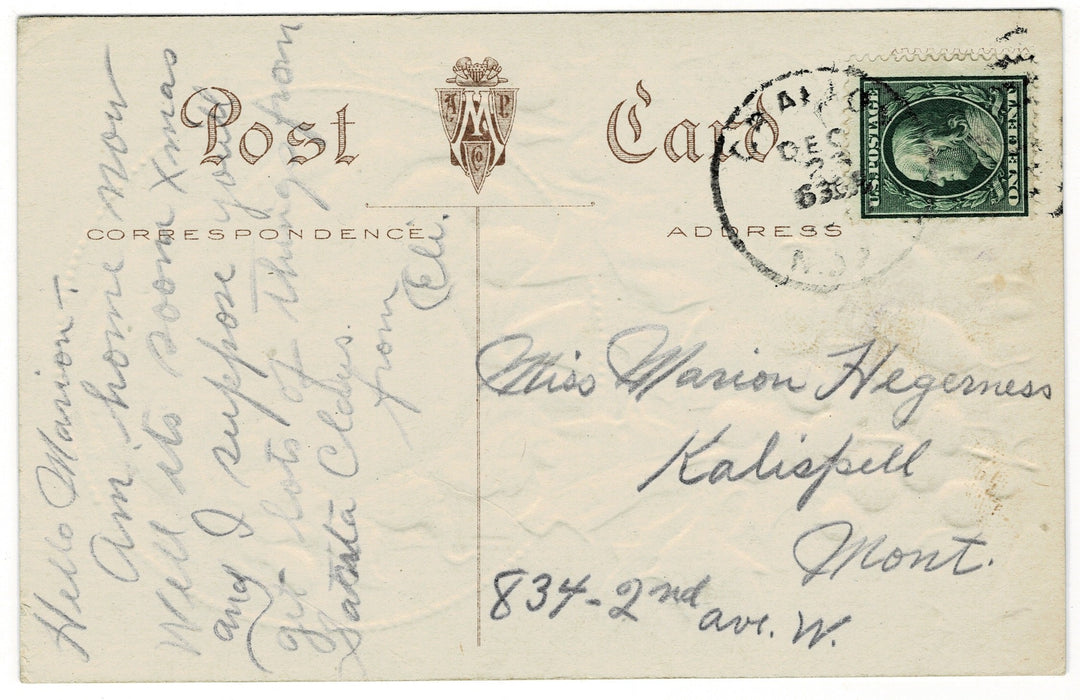 Post Card
CORRESPONDENCE
ADDRESS
DEC
23
630PM
N.D.
U.S.POSTAGE
Hello Marion—
Am home now
Well its soon Xmas
and I suppose you'll
get lots of things from
Santa Claus.
from
Eli.
Miss Marion Hegerness
Kalispell
Mont.
834-2nd
ave. W.